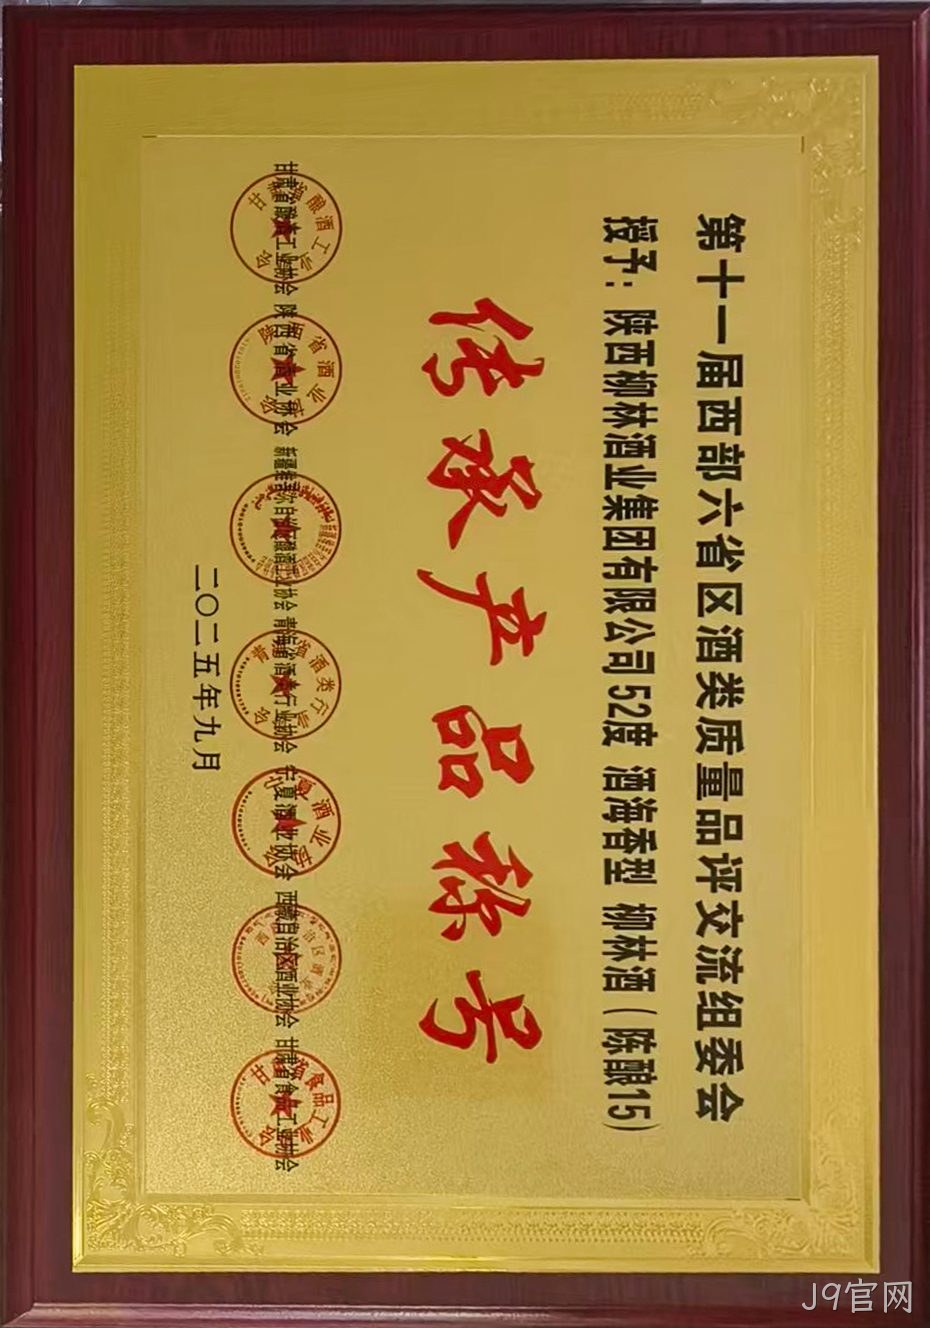 第十一届西部六省区酒类质量品评交流组委会
授予：陕西柳林酒业集团有限公司52度 酒海香型 柳林酒（陈酿15）
传承产品称号
甘肃省酿酒工业协会 陕西省酒业协会 新疆维吾尔自治区酿酒工业协会 青海省酒类行业协会 宁夏酒业协会 西藏自治区酒业协会 甘肃省食品工业协会
二〇二五年九月
J9官网